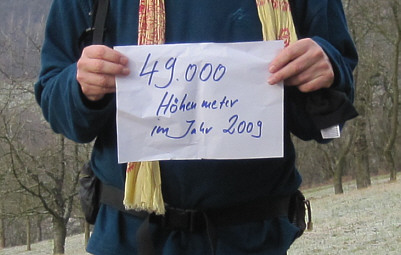 49.000
Höhenmeter
im Jahr 2009